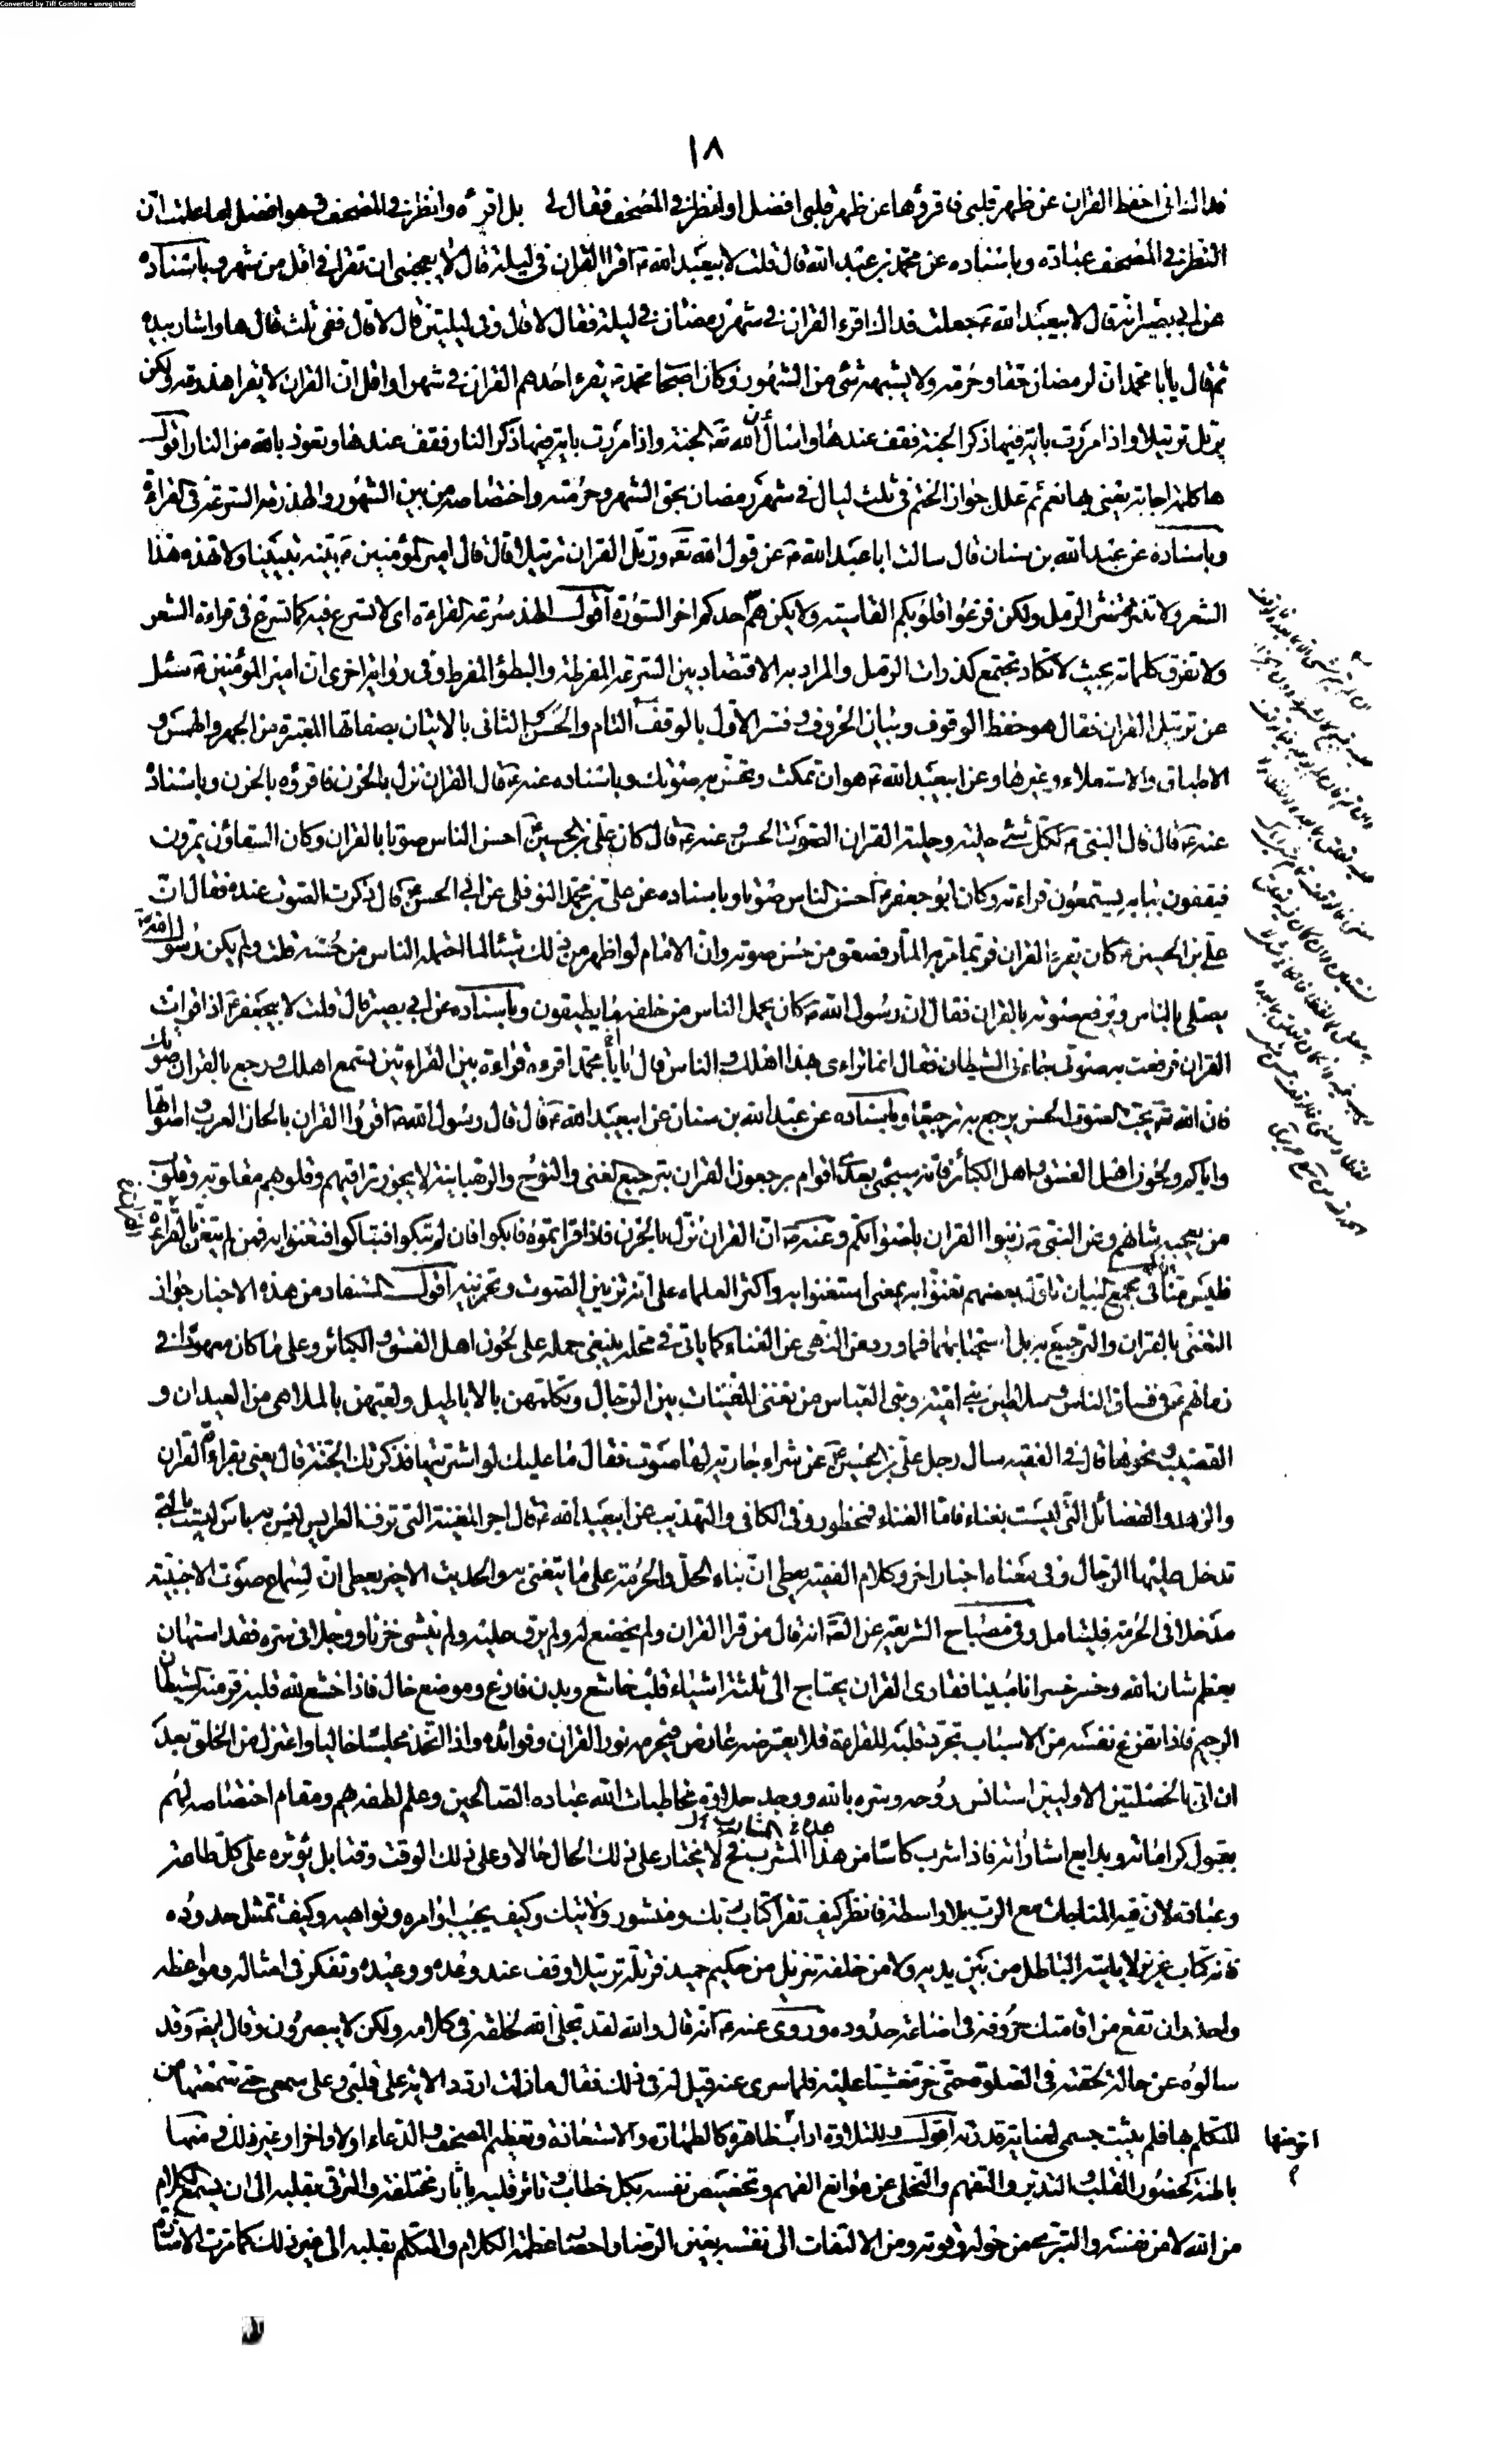 Converted by Tiff Combine - unregistered
١٨
فداك انى احفظ القران عن ظهر قلبى فاقرؤها عن ظهر قلبى افضل او انظر فى المصحف فقال لى بل اقرئه وانظر فى المصحف فهو افضل اما علمت ان
النظر فى المصحف عبادة وباسناده عن محمد بن عبد الله قال قلت لابيعبد الله ع اقرا القران فى ليلة قال لا يعجبنى ان تقراه فى اقل من شهر وباسناده
عن ابى بصير انه قال لابيعبد الله ع جعلت فداك اقرء القران فى شهر رمضان فى ليلة فقال لا قال وفى ليلتين قال لا قال ففى ثلث قال ها واشار بيده
ثم قال يا با محمد ان لرمضان حقا وحرمة ولا يشبهه شئ من الشهور وكان اصحاب محمد ص يقرء احدهم القران فى شهر او اقل ان القران لا يقرا هذرمة ولكن
يرتل ترتيلا واذا مررت باية فيها ذكر الجنة فقف عندها واسال الله تعه الجنة واذا مررت باية فيها ذكر النار فقف عندها وتعوذ بالله من النار اقول
ها كلمة اجابة يعنى بها نعم ثم علل جواز الختم فى ثلث ليال فى شهر رمضان بحق الشهر وحرمته واختصاصه من بين الشهور والهذرمة السرعة فى القراءة
وباسناده عن عبد الله بن سنان قال سالت ابا عبد الله ع عن قول الله تعه ورتل القران ترتيلا قال قال امير المؤمنين ع بينه تبيينا ولا تهذه هذ
الشعر ولا تنثره نثر الرمل ولكن فزعوا قلوبكم القاسية ولا يكن هم احدكم اخر السورة اقول الهذ سرعة القراءة اى لا تسرع فيه كما تسرع فى قراءة الشعر
ولا تفرق كلماته بحيث لا تكاد تجتمع كذرات الرمل والمراد به الاقتصاد بين السرعة المفرطة والبطؤ المفرط وفى رواية اخرى ان امير المؤمنين ع سئل
عن ترتيل القران فقال هو حفظ الوقوف وبيان الحروف وفسر الاول بالوقف التام والحسن والثانى بالاتيان بصفاتها المعتبرة من الجهر والهمس و
الاطباق والاستعلاء وغيرها وعن ابيعبد الله ع هو ان تمكث وتحسن به صوتك وباسناده عنه ع قال القران نزل بالحزن فاقرؤه بالحزن وباسناده
عنه ع قال قال النبى ص لكل شئ حلية وحلية القران الصوت الحسن وعنه ع قال كان على بن الحسين ع احسن الناس صوتا بالقران وكان السقاؤن يمرون
فيقفون ببابه يستمعون قراءته وكان ابو جعفر ع احسن الناس صوتا وباسناده عن على بن محمد النوفلى عن ابى الحسن ع قال ذكرت الصوت عنده فقال ان
على بن الحسين ع كان يقرء القران فربما مر به المار فصعق من حسن صوته وان الامام لو اظهر من ذلك شيئا لما احتمله الناس من حسنه قلت ولم يكن رسول الله ص
يصلى بالناس ويرفع صوته بالقران فقال ان رسول الله ص كان يحمل الناس من خلفه ما يطيقون وباسناده عن ابى بصير قال قلت لابيجعفر ع اذا قرات
القران فرفعت به صوتى جاءنى الشيطان فقال انما ترائى بهذا اهلك والناس قال يا با محمد اقرء قراءة بين القراءتين تسمع اهلك ورجع بالقران صوتك
فان الله تعه يحب الصوت الحسن يرجع به ترجيعا وباسناده عن عبد الله بن سنان عن ابيعبد الله ع قال قال رسول الله ص اقرؤا القران بالحان العرب واصواتها
واياكم ولحون اهل الفسق واهل الكبائر فانه سيجئ بعدى اقوام يرجعون القران ترجيع الغنى والنوح والرهبانية لا يجوز تراقيهم وقلوبهم مقلوبة وقلوب
من يعجبه شانهم وعن النبى ص زينوا القران باصواتكم وعنه ص ان القران نزل بالحزن فاذا قراتموه فابكوا فان لم تبكوا فتباكوا وتغنوا به فمن لم يتغن بالقران
فليس منا فى مجمع البيان تاول بعضهم تغنوا به بمعنى استغنوا به واكثر العلماء على انه تزيين الصوت وتحزينه اقول المستفاد من هذه الاخبار جواز
التغنى بالقران والترجيع به بل استحبابهما فما ورد من النهى عن الغناء كما ياتى فى محله ينبغى حمله على لحون اهل الفسق والكبائر وعلى ما كان معهودا فى
زمانهم ع فى فساق الناس وسلاطين بنى امية وبنى العباس من تغنى المغنيات بين الرجال وتكلمهن بالاباطيل ولعبهن بالملاهى من العيدان و
القضيب ونحوها قال فى الفقيه سال رجل على بن الحسين ع عن شراء جارية لها صوت فقال ما عليك لو اشتريتها فذكرتك الجنة قال يعنى بقراءة القران
والزهد والفضائل التى ليست بغناء فاما الغناء فمحظور وفى الكافى والتهذيب عن ابيعبد الله ع قال اجر المغنية التى تزف العرايس ليس به باس ليست بالتى
تدخل عليها الرجال وفى معناه اخبار اخر وكلام الفقيه يعطى ان بناء الحل والحرمة على ما يتغنى به والحديث الاخير يعطى ان لسماع صوت الاجنبية
مدخلا فى الحرمة فليتامل وفى مصباح الشريعة عن الصه انه قال من قرا القران ولم يخضع له ولم يرق عليه ولم ينشئ حزنا ووجلا فى سره فقد استهان
بعظم شان الله وخسر خسرانا مبينا فقارى القران يحتاج الى ثلثة اشياء قلب خاشع وبدن فارغ وموضع خال فاذا خشع لله قلبه فر منه الشيطان
الرجيم فاذا تفرغ نفسه من الاسباب تجرد قلبه للقراءة فلا يعترضه عارض فيحرمه نور القران وفوائده واذا اتخذ مجلسا خاليا واعتزل من الخلق بعد
ان اتى بالخصلتين الاوليين استانس روحه وسره بالله ووجد حلاوة مخاطبات الله عباده الصالحين وعلم لطفه بهم ومقام اختصاصه لهم
بقبول كراماته وبدايع اشاراته فاذا شرب كاسا من هذا المشرب فح لا يختار على ذلك الحال حالا وعلى ذلك الوقت وقتا بل يؤثره على كل طاعة
وعبادة لان فيه المناجات مع الرب بلا واسطة فانظر كيف تقرا كتاب ربك ومنشور ولايتك وكيف يجيب اوامره ونواهيه وكيف تمتثل حدوده
فانه كتاب عزيز لا ياتيه الباطل من بين يديه ولا من خلفه تنزيل من حكيم حميد فرتله ترتيلا وقف عند وعده ووعيده وتفكر فى امثاله ومواعظه
واحذر ان تقع من اقامتك حروفه فى اضاعة حدوده وروى عنه ع انه قال والله لقد تجلى الله لخلقه فى كلامه ولكن لا يبصرون وقال ايضه وقد
سالوه عن حالة لحقته فى الصلوة حتى خر مغشيا عليه فلما سرى عنه قيل له فى ذلك فقال ما زلت اردد الاية على قلبى وعلى سمعى حتى سمعتها من
المتكلم بها فلم يثبت جسمى لمعاينة قدرته اقول وللتلاوة اداب ظاهرة كالطهارة والاستعاذة وتعظيم المصحف والدعاء اولا واخرا وغير ذلك ومنها
باطنة كحضور القلب والتدبر والتفهم والتخلى عن موانع الفهم وتخصيص نفسه بكل خطاب وتاثر قلبه باثار مختلفة والترقى بقلبه الى ان يستمع الكلام
من الله لا من نفسه والتبرى من حوله وقوته ومن الالتفات الى نفسه بعين الرضا واحضار عظمة الكلام والمتكلم بقلبه الى غير ذلك كما مرت الاشارة